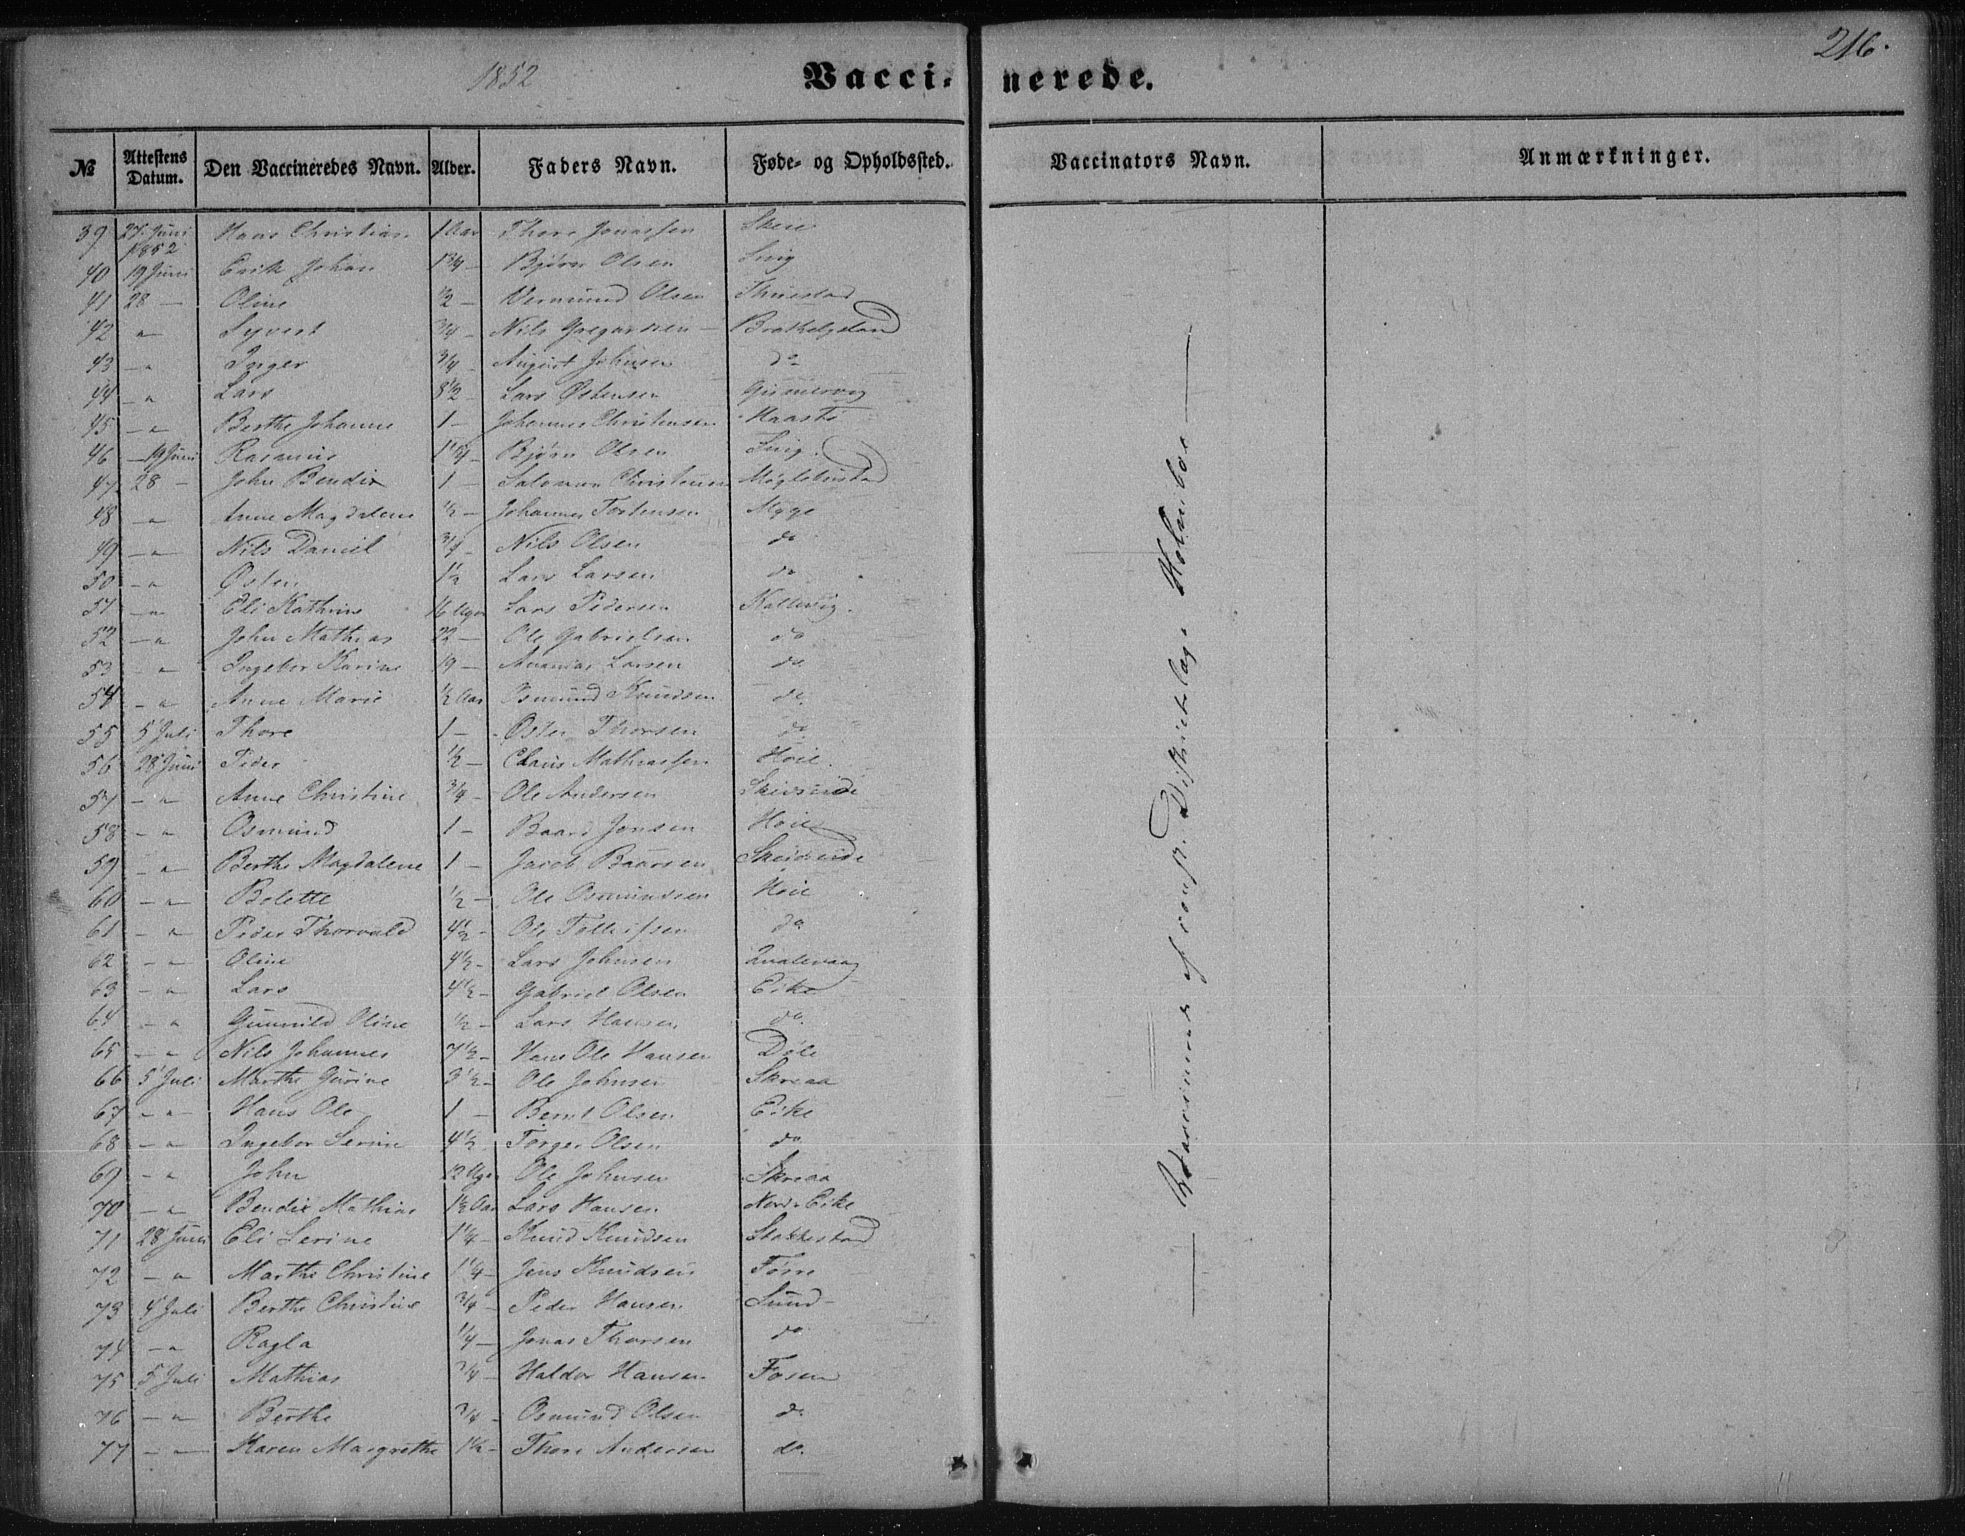 216.
1852 Vacci- nerede.
№ Attestens Datum. Den Vaccineredes Navn. Alder. Faders Navn. Føde- og Opholdssted. Vaccinators Navn. Anmærkninger.
39 27 Juni 1852 Hans Christian 1 Aar Thore Jonassen Skeie
40 19 Juni Erik Johan 1 3/4 — Bjørn Olsen
41 28 — Oline 1/2 — Vermund Olsen Thuestad
42 — " Syvert 3/4 — Nils Gregersen — Brathelgeland
43 — " Inger 3/4 — August Johnsen do
44 — " Lars 8 1/2 Lars Østensen
45 — " Berthe Johanne 1 — Johannes Christensen Haasto
46 — 19 Juni Rasmus Bjørn Olsen
47 28 — John Bendix 1 — Salomon Christensen Møglebustad
48 — " Anne Magdalene 1/2 — Johannes Tostensen Myge
49 — " Nils Daniel 3/4 — Nils Olsen do
50 — " Østen 1 1/2 Lars Larsen do
51 — " Eli Kathrine 16 Uger Lars Pedersen Kallevig.
52 — " John Mathias 22 — Ole Gabrielsen do
53 — " Ingebor Karine 19 — Ananias Larsen do
54 — " Anne Marie 1/2 Aar Osmund Knudsen do.
55 5 Juli Thore 1 — Østen Thorsen do
56 28 Juni Peder 1/2 — Claus Mathiassen Høie.
57 — " Anne Christine 3/4 — Ole Andersen Skeiseide
58 — " Osmund 1 — Baard Jonsen Høie
59 — " Berthe Magdalene 1 — Jacob Baarsen Skeiseide
60 — " Bolette 1/2 — Ole Osmundsen Høie
61 — " Peder Thorvald 4 1/2 — Ole Tollefsen do
62 — " Oline 4 1/2 — Lars Johnsen Qualevaag
63 — " Lars 4 1/2 — Gabriel Olsen Eike
64 — " Gunnild Oline 1/2 — Lars Hansen do.
65 — " Nils Johannes 7 1/2 — Hans Ole Hansen Døle
66 5 Juli Marthe Gurine 3 1/2 — Ole Johnsen Skreaa
67 — " Hans Ole 1 — Bernt Olsen Eike
68 — " Ingebor Serine 4 1/2 Torger Olsen do
69 — " John 12 Uger Ole Johnsen Skreaa
70 — " Bendix Mathias 1 1/2 Aar Lars Hansen Nord-Eike
71 28 Juni Eli Serine 1 1/4 — Knud Knudsen Stakkestad
72 — " Marthe Christine 1 1/4 — Jens Knudsen Førre
73 4 Juli Berthe Christine 3/4 — Peder Hansen Sund —
74 — " Ragla 1/4 — Jonas Thorsen do
75 5 Juli Mathias 3/4 — Haldor Hansen Fosen
76 — " Berthe 3/4 — Osmund Olsen do
77 — " Karen Margrethe 1 1/2 — Thore Andersen do.
— af const. Districtslæge Holmboe —